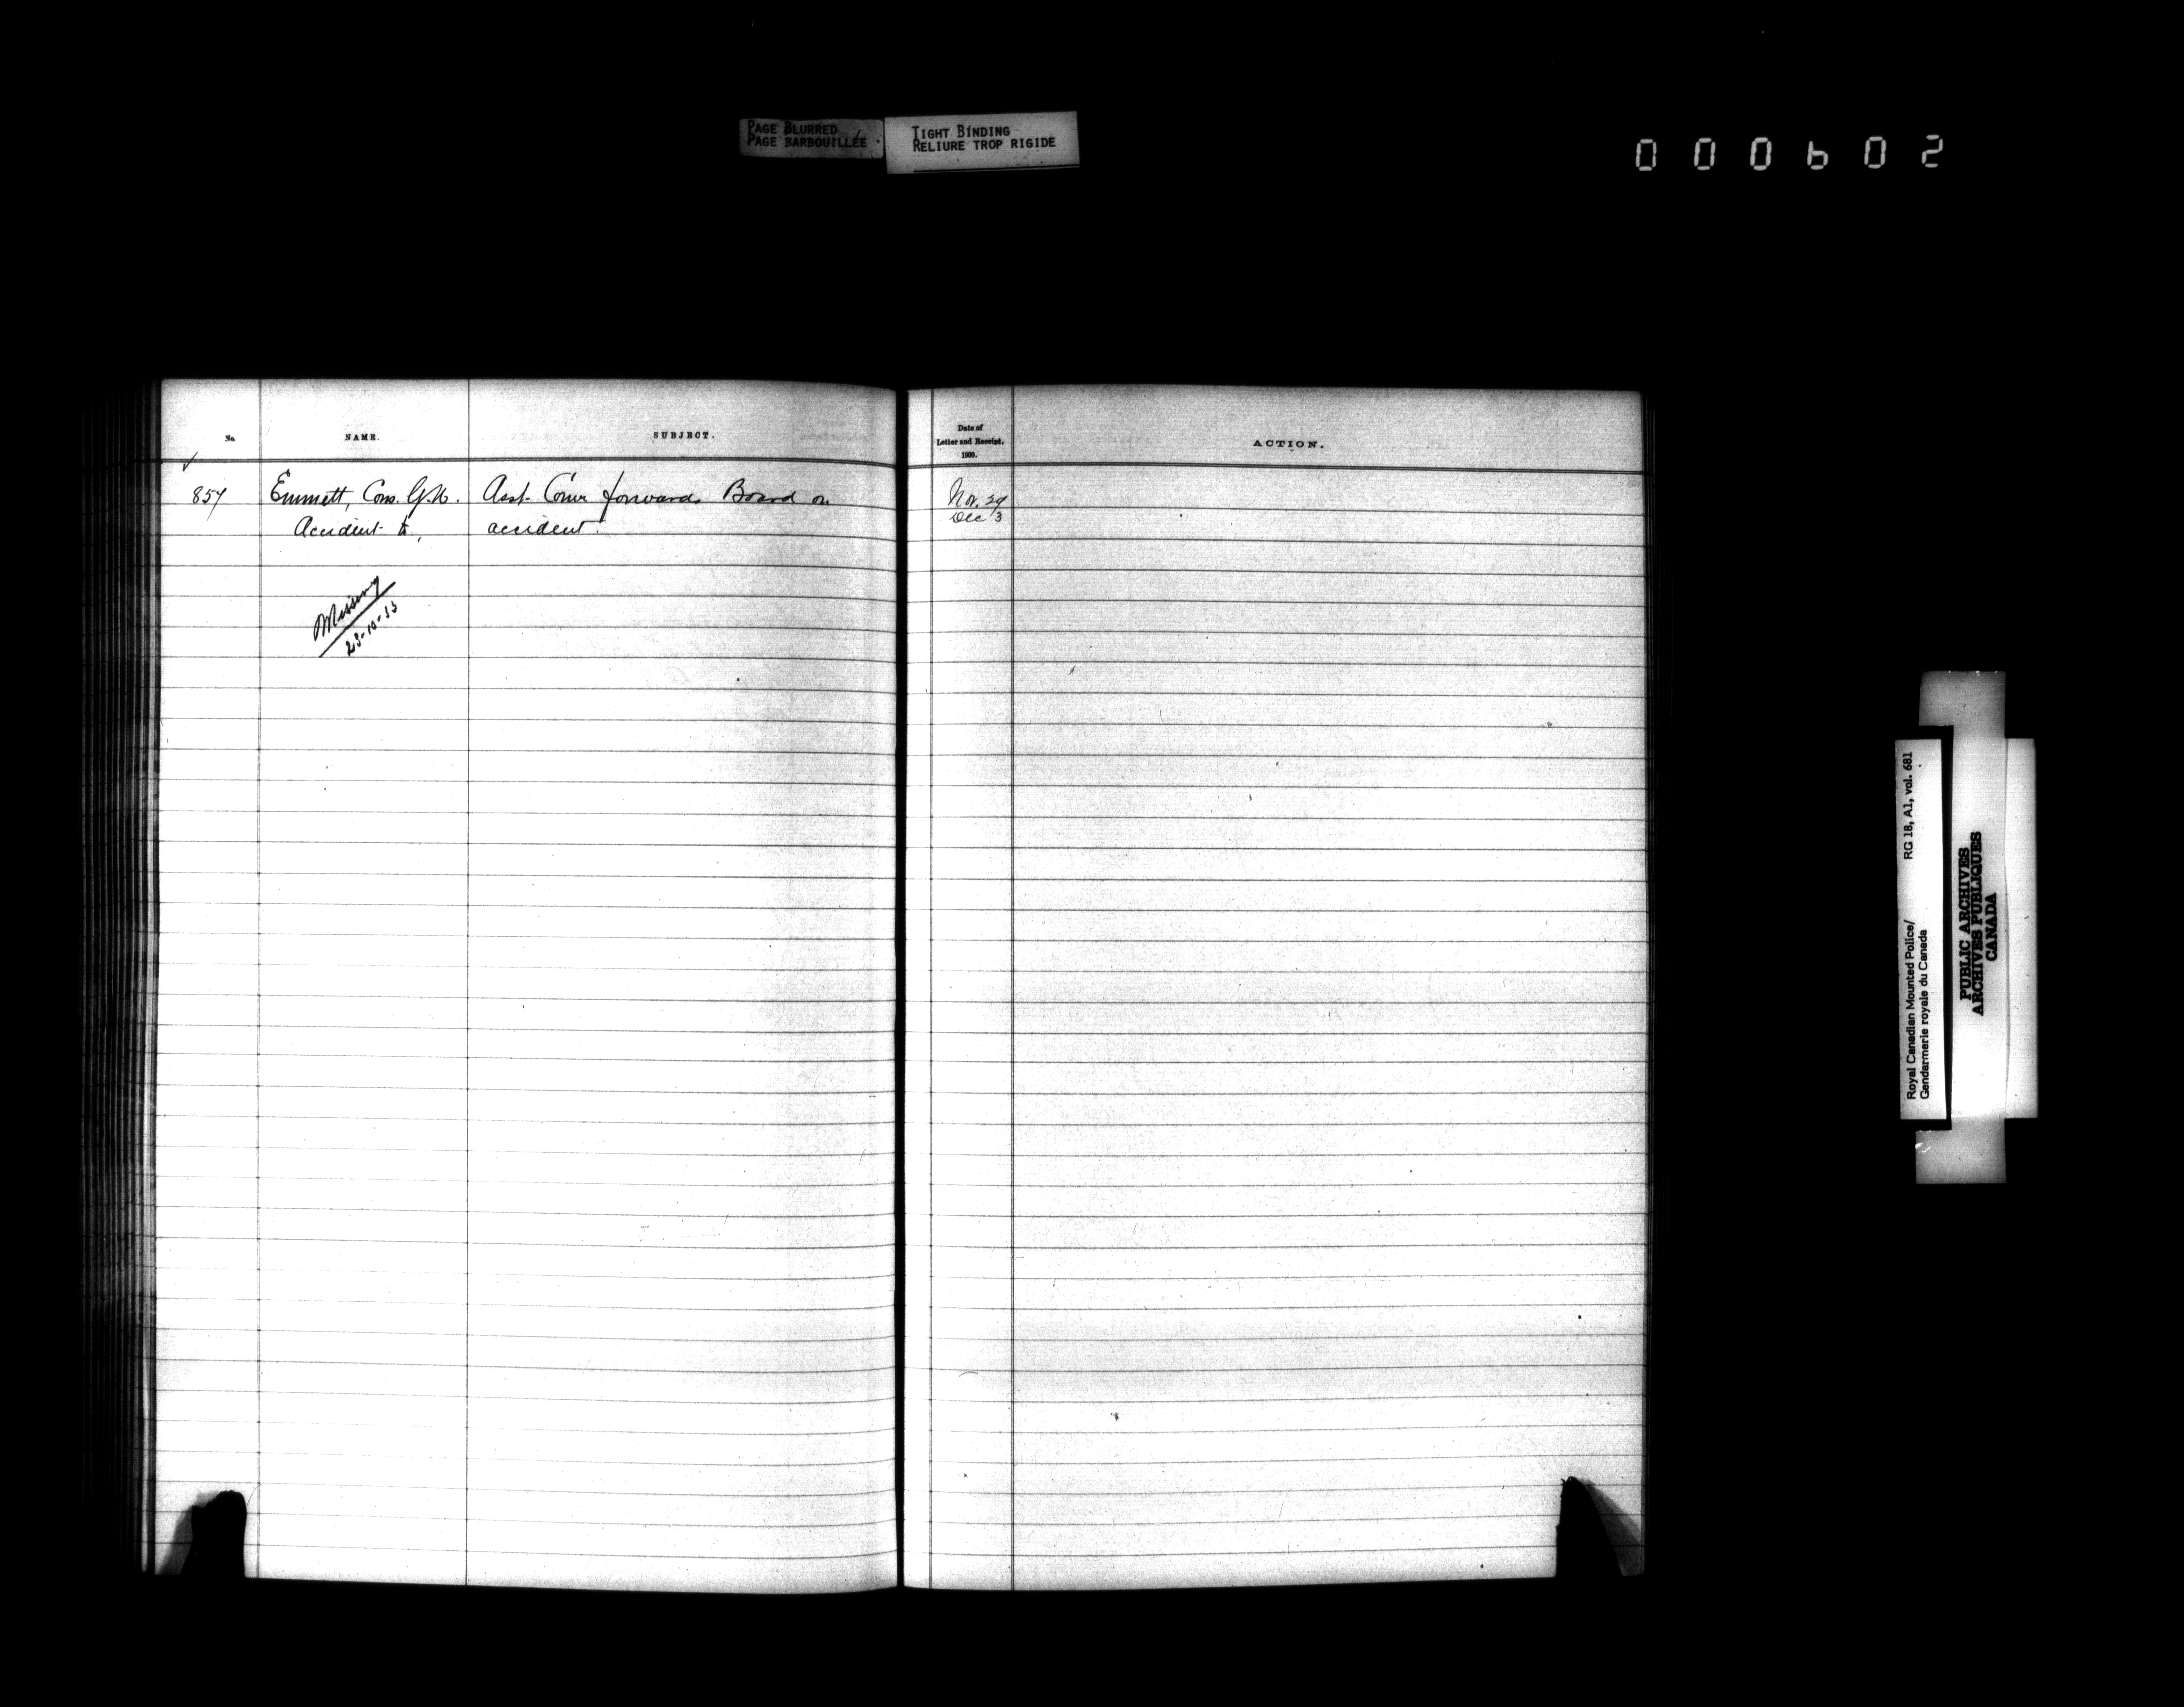 PAGE BLURRED
PAGE BARBOUILLÉE
TIGHT BINDING
RELIURE TROP RIGIDE
000602
No.
NAME.
SUBJECT.
Date of
Letter and Receipt.
1900.
ACTION.
857
Emmett, Cons. G.H.
Accident to,
Asst. Comr forwards Board on
accident.
Nov. 29
Dec 3
Missing
23-10-33
Royal Canadian Mounted Police/
Gendarmerie royale du Canada
RG 18, A1, vol. 681
PUBLIC ARCHIVES
ARCHIVES PUBLIQUES
CANADA